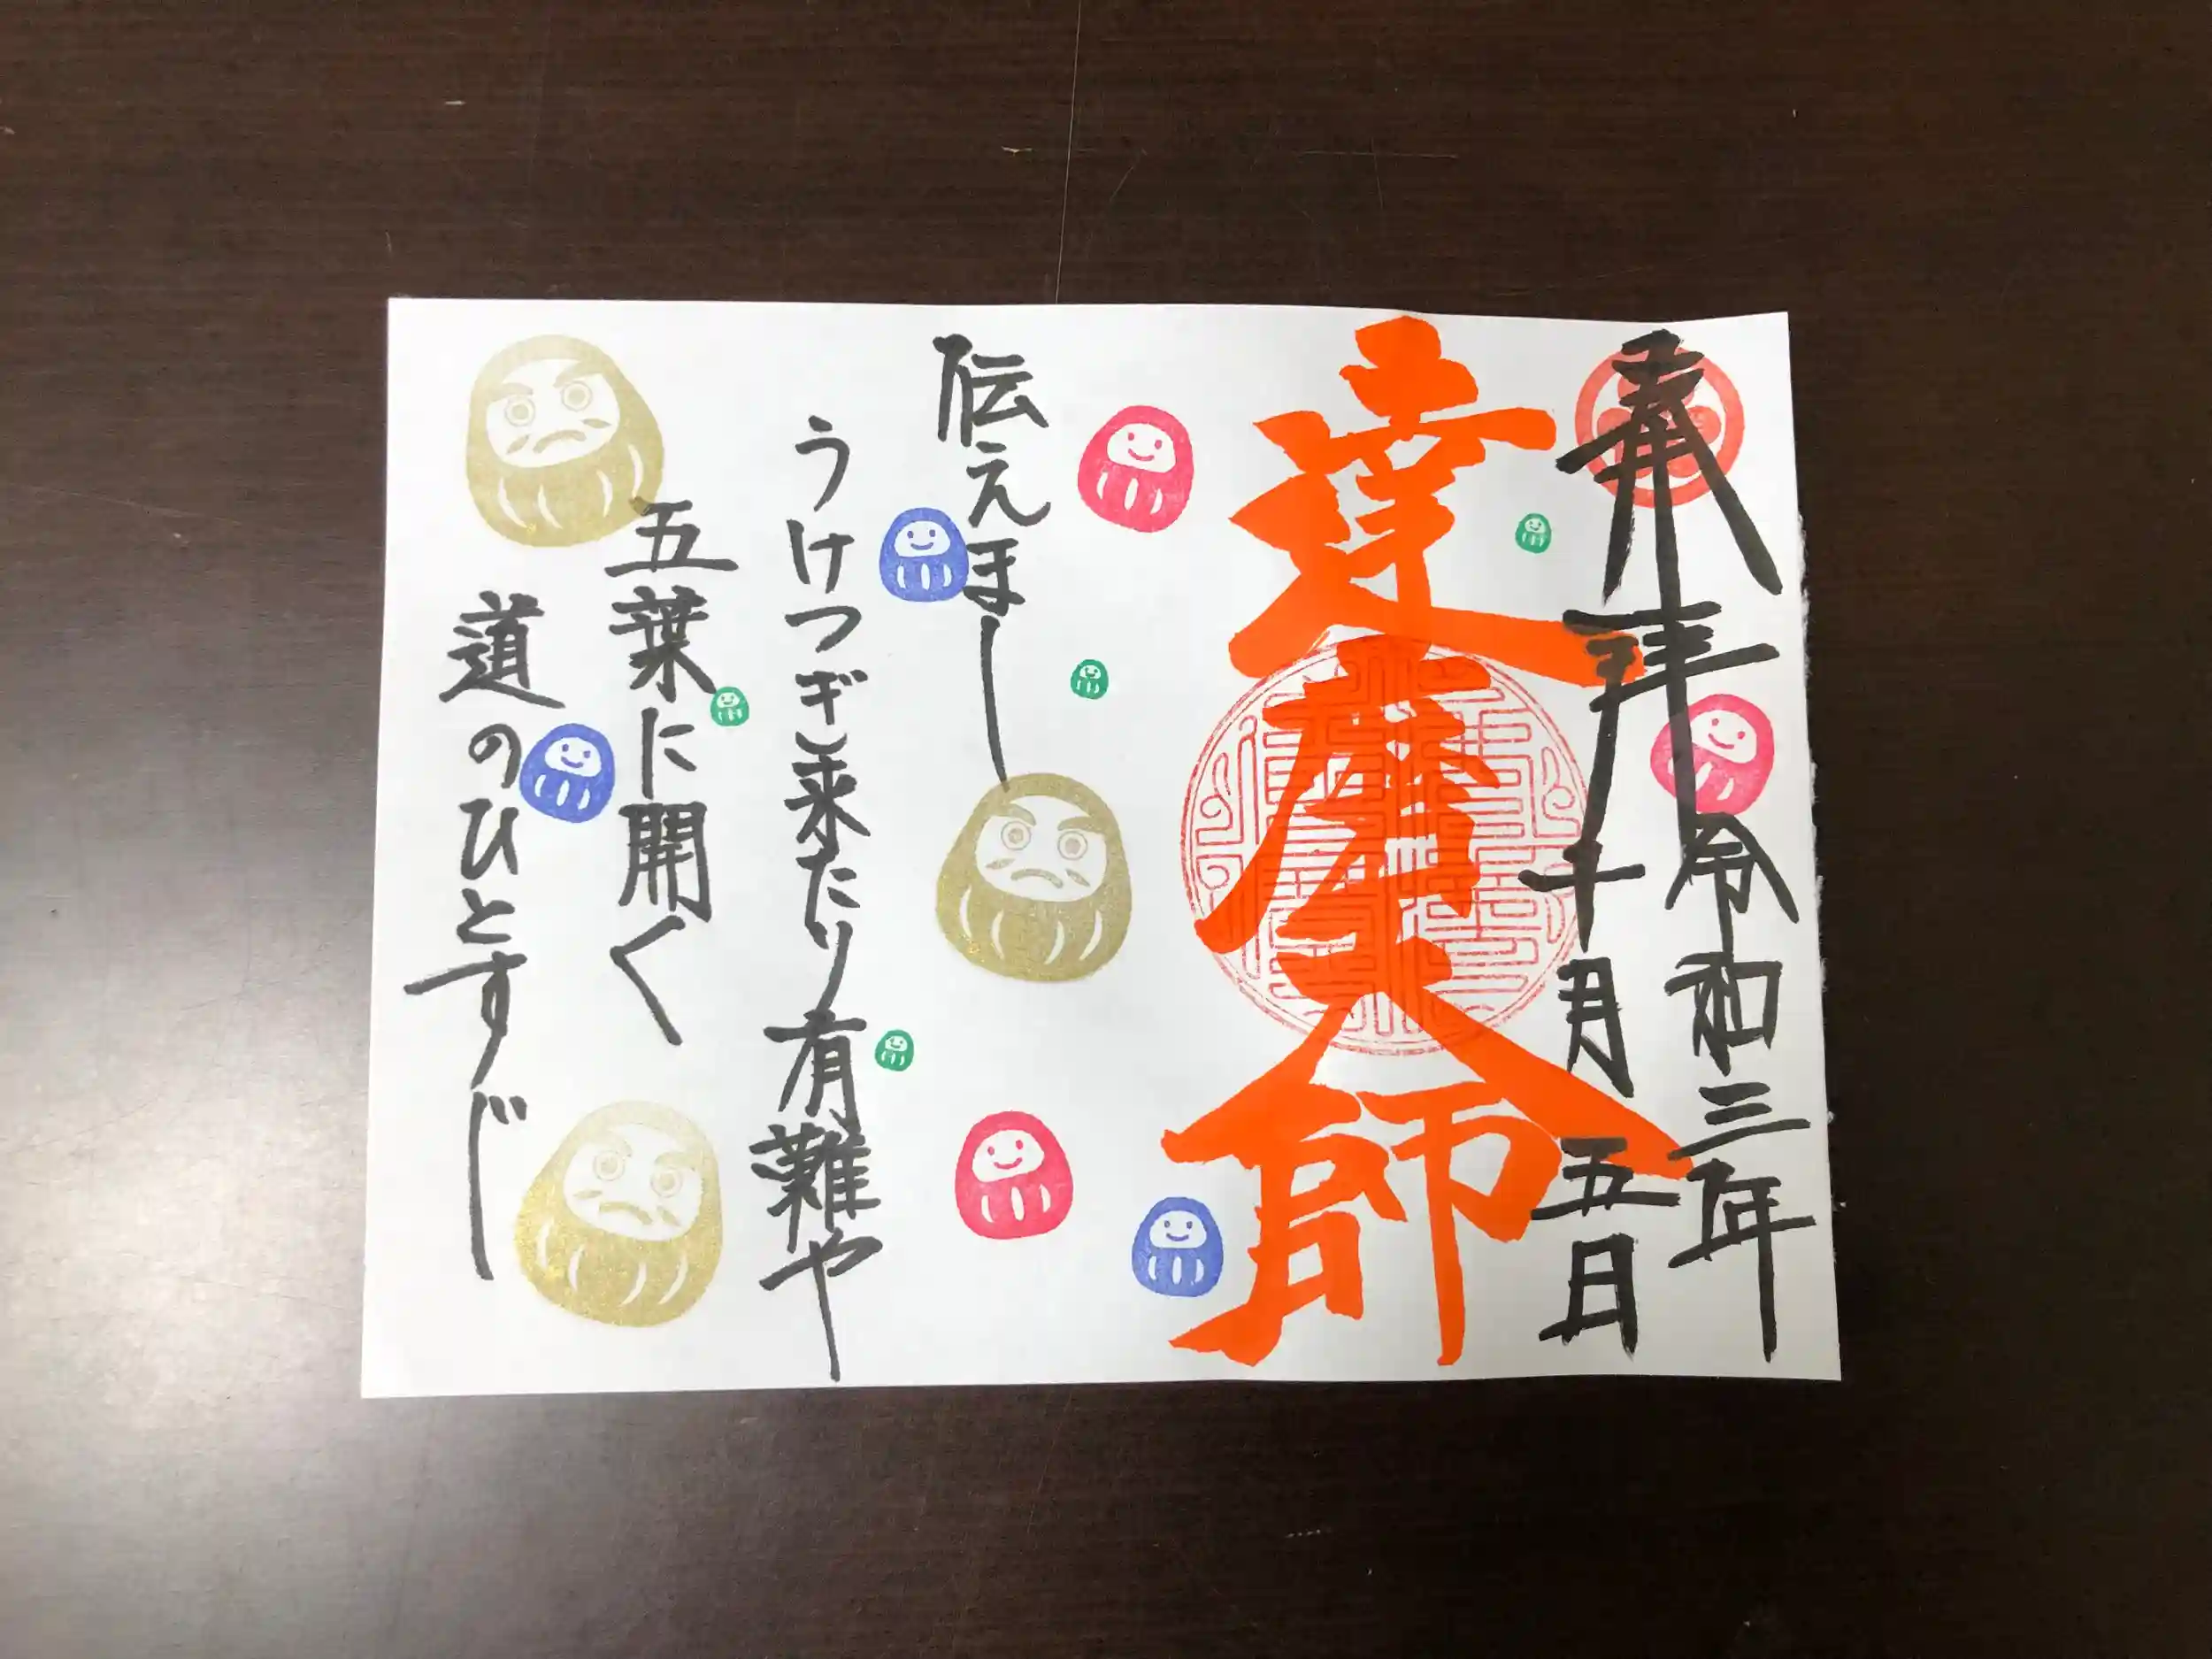 奉拝
令和三年
十月五日
達磨大師
伝えほし
うけつぎ来たり有難や
五葉に開く
道のひとすじ